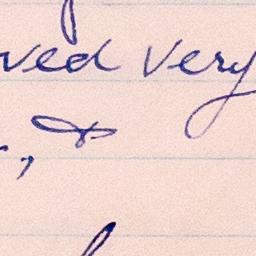 ved very
, &